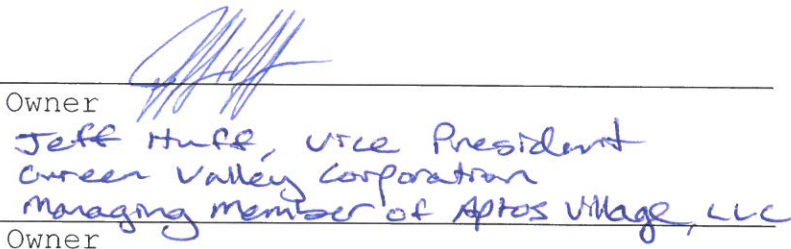 Owner
Jeff Huff, Vice President
Green Valley Corporation
Managing Member of Aptos Village, LLC
Owner